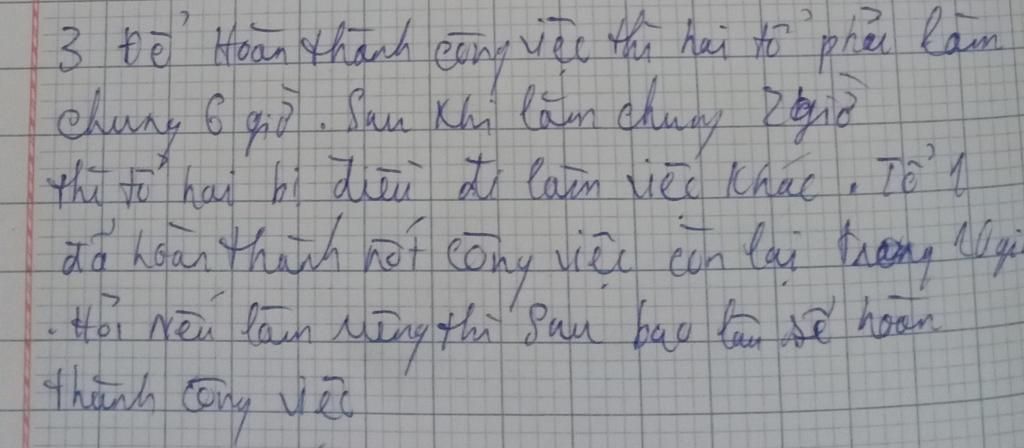 3 Để Hoàn thành công việc thì hai tổ phải làm
chung 6 giờ. Sau khi làm chung 2 giờ
thì tổ hai bị điều đi làm việc khác. Tổ 1
đã hoàn thành nốt công việc còn lại trong 10 gi
. Hỏi nếu làm riêng thì sau bao lâu sẽ hoàn
thành công việc